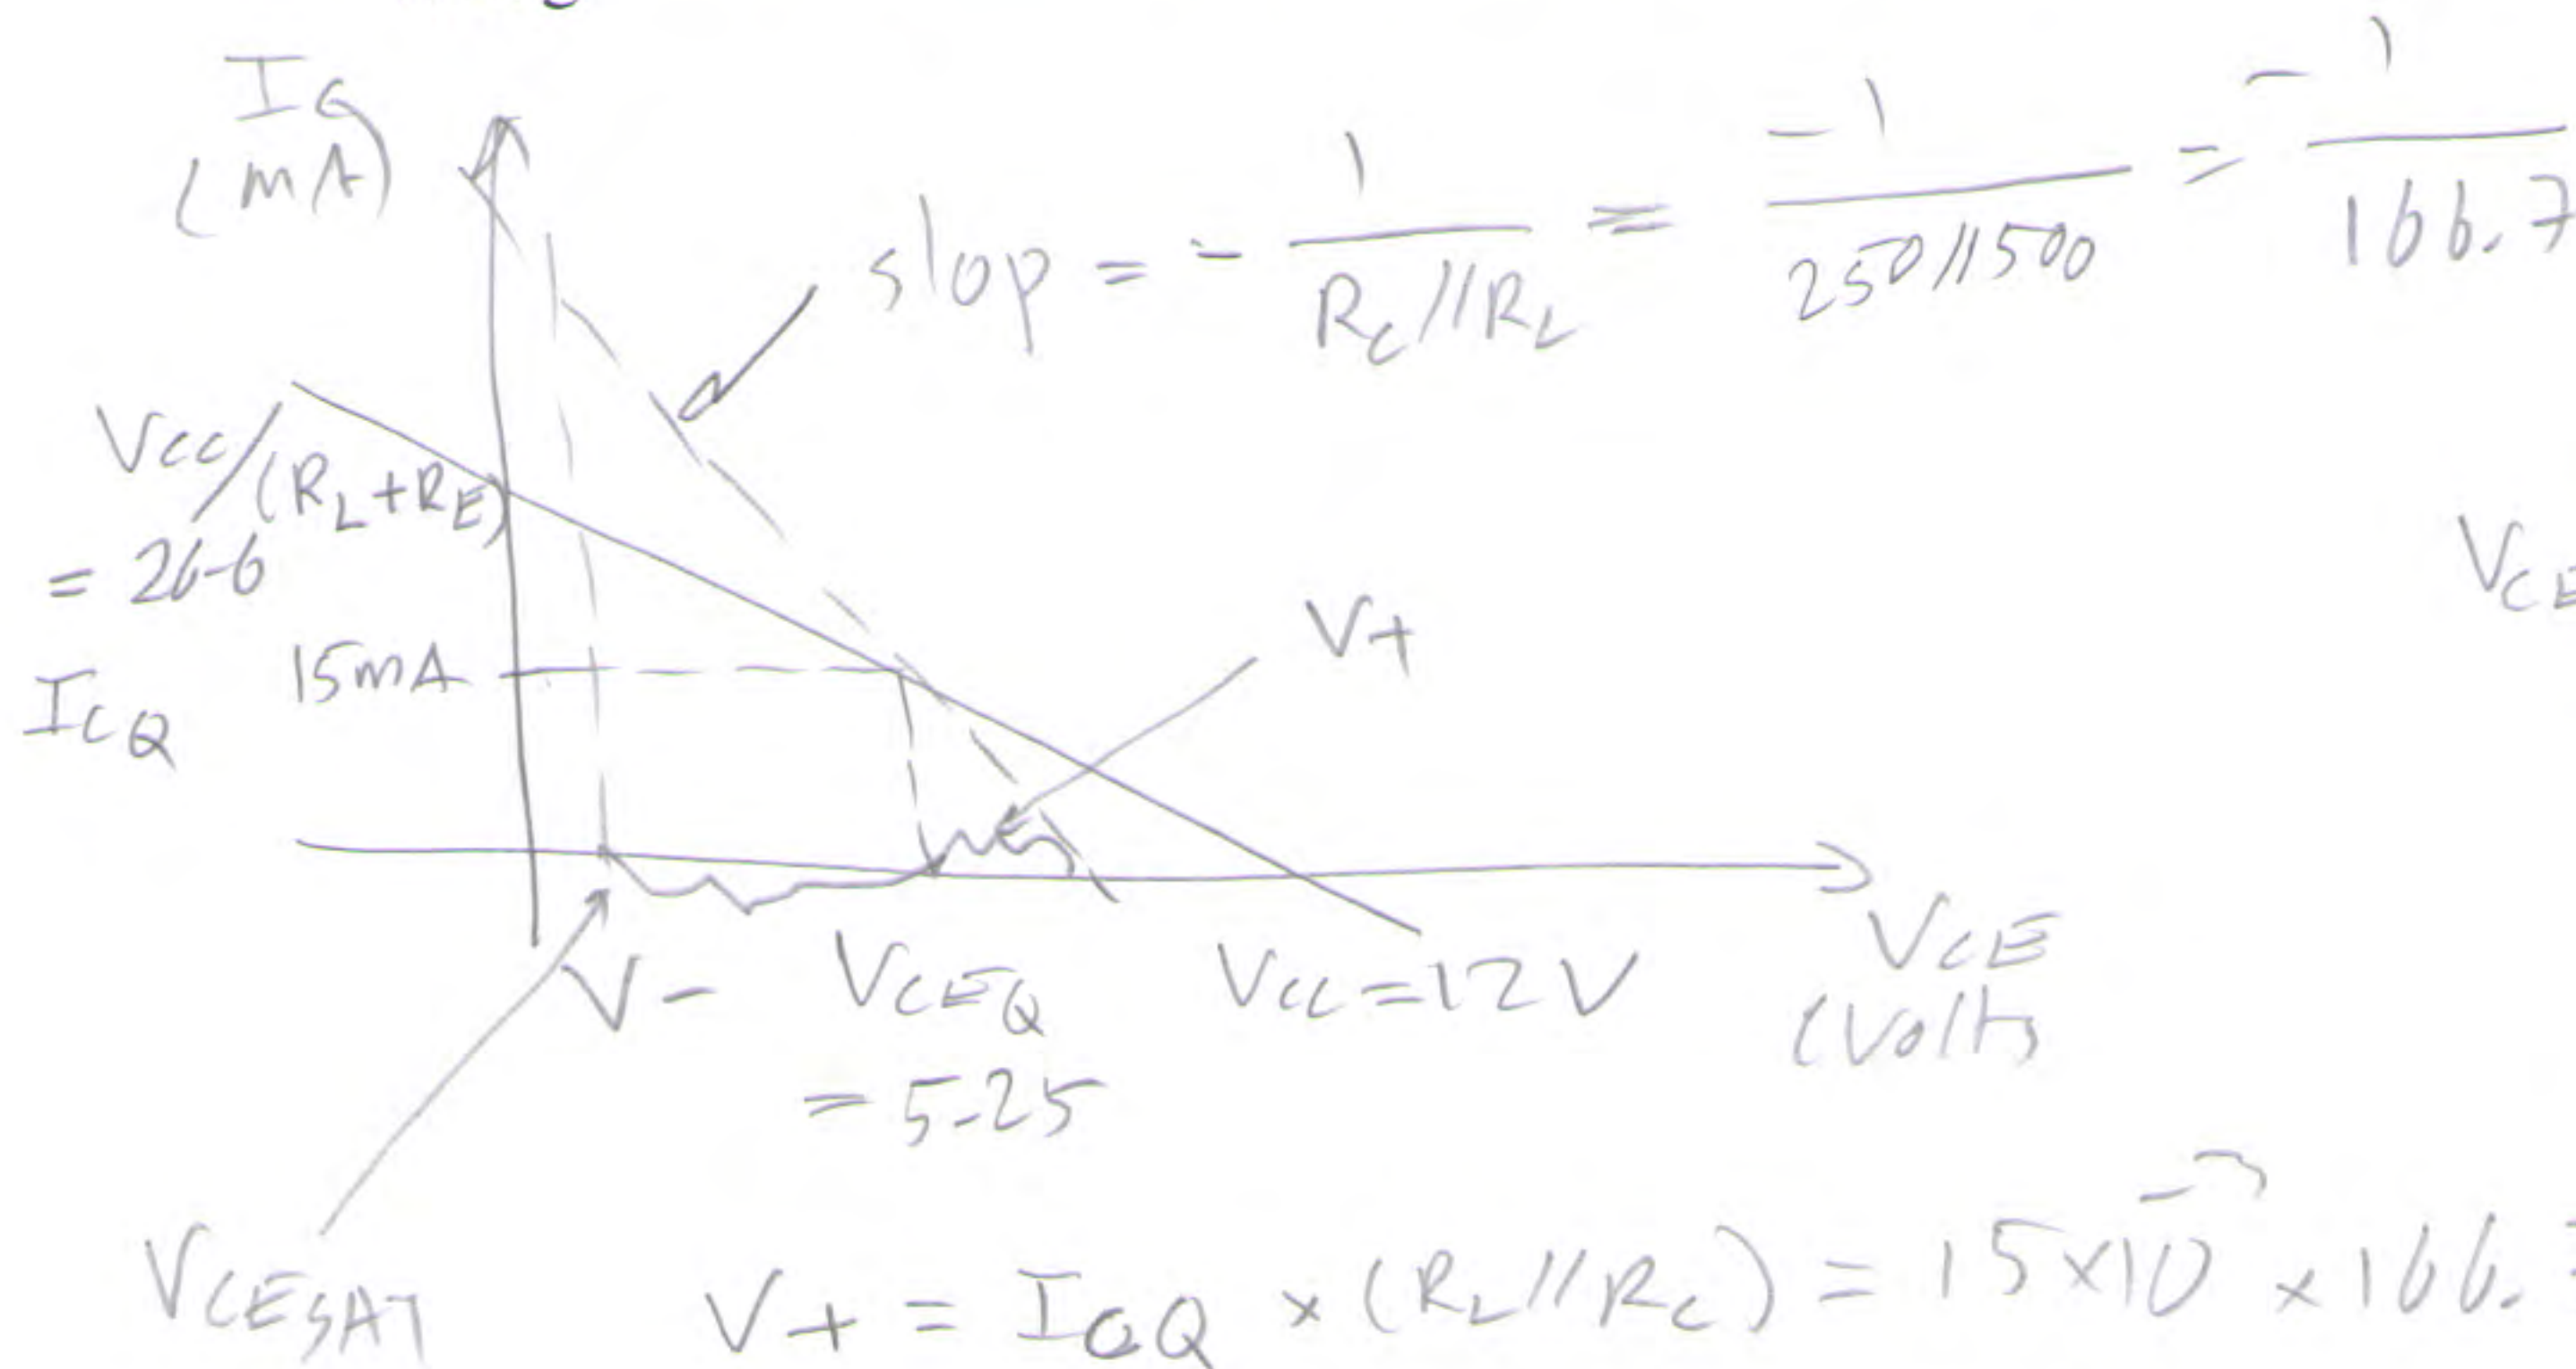 IC
(mA)
slop = - 1 / RC//RL = -1 / 250//500 = - 1 / 166.7
VCC/(RL+RE)
= 26-6
VCE
V+
15mA
ICQ
V- VCEQ VCC=12V VCE
= 5-25 (Volt)
VCESAT
V+ = ICQ × (RL//RC) = 15×10⁻³ × 166.